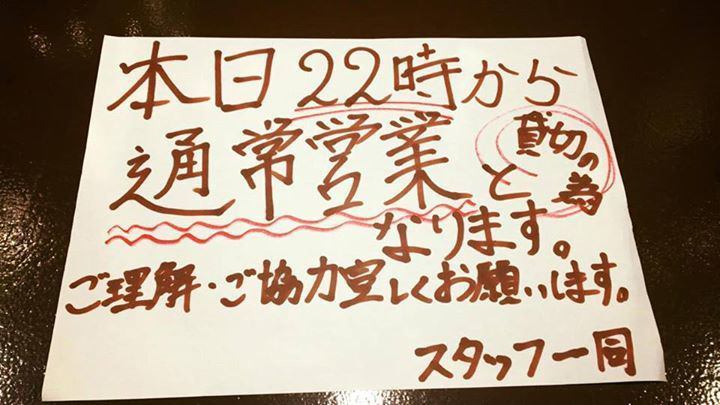 本日22時から
通常営業と
貸切の為
なります。
ご理解・ご協力宜しくお願いします。
スタッフ一同